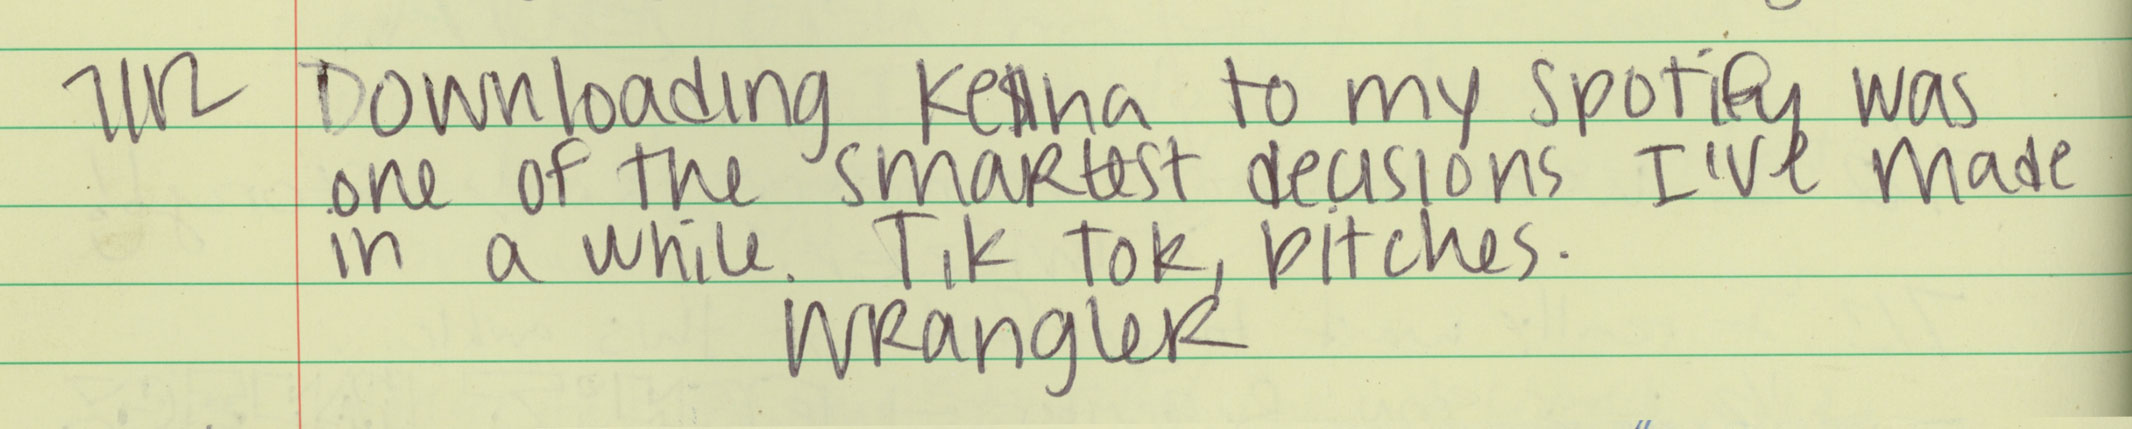 7/12 Downloading Ke$ha to my spotify was
one of the smartest decisions I've made
in a while. Tik Tok, bitches.
Wrangler